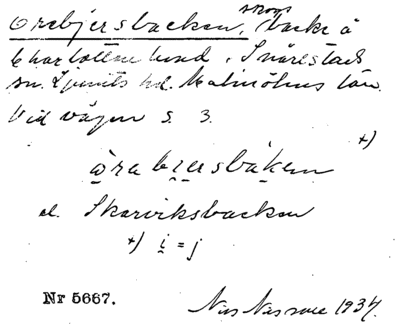 Orebjersbacken, skogsbacke å
Charlottenlund, Snårestads
sn. Ljunits hd. Malmöhus län.
Vid vägen s. 3.
årabi̯ersbáken +)
el. Skarviksbacken
+) i̯ = j
Nr 5667.
Nils 1937.